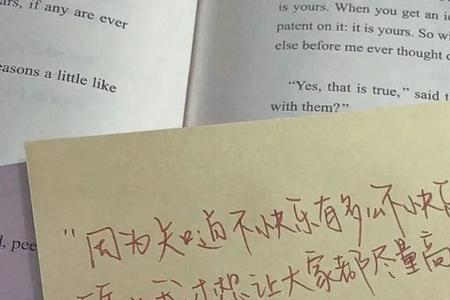 ars, if any are ever
easons a little like
is yours. When you get an
patent on it: it is yours. So
else before me ever thought
"Yes, that is true," said
with them?"
"因为知道不快乐有多么不快
才想让大家都尽量高